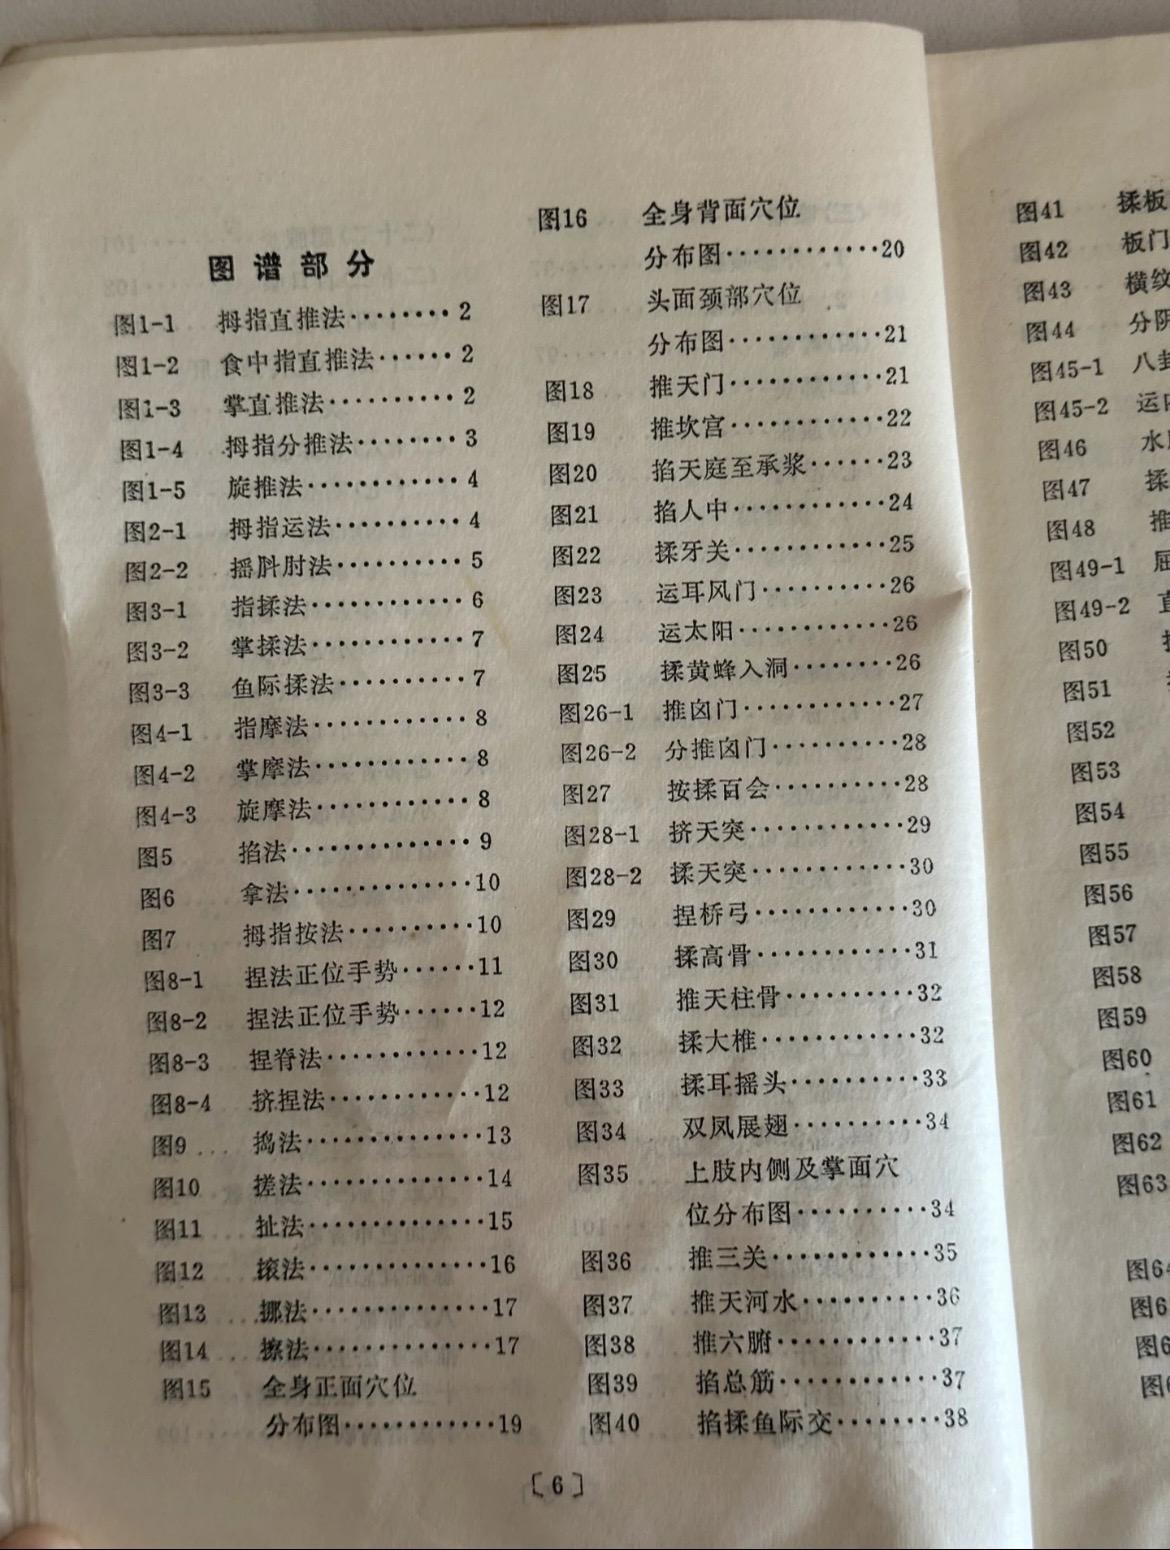 图谱部分
图1-1 拇指直推法········2
图1-2 食中指直推法······2
图1-3 掌直推法··········2
图1-4 拇指分推法········3
图1-5 旋推法············4
图2-1 拇指运法··········4
图2-2 摇䏢肘法··········5
图3-1 指揉法············6
图3-2 掌揉法············7
图3-3 鱼际揉法··········7
图4-1 指摩法············8
图4-2 掌摩法············8
图4-3 旋摩法············8
图5 掐法··············9
图6 拿法··············10
图7 拇指按法··········10
图8-1 捏法正位手势······11
图8-2 捏法正位手势······12
图8-3 捏脊法············12
图8-4 挤捏法············12
图9 捣法··············13
图10 搓法··············14
图11 扯法··············15
图12 滚法··············16
图13 挪法··············17
图14 擦法··············17
图15 全身正面穴位
分布图············19
图16 全身背面穴位
分布图············20
图17 头面颈部穴位
分布图············21
图18 推天门············21
图19 推坎宫············22
图20 掐天庭至承浆······23
图21 掐人中············24
图22 揉牙关············25
图23 运耳风门··········26
图24 运太阳············26
图25 揉黄蜂入洞········26
图26-1 推囟门············27
图26-2 分推囟门··········28
图27 按揉百会··········28
图28-1 挤天突············29
图28-2 揉天突············30
图29 捏桥弓············30
图30 揉高骨············31
图31 推天柱骨··········32
图32 揉大椎············32
图33 揉耳摇头··········33
图34 双凤展翅··········34
图35 上肢内侧及掌面穴
位分布图··········34
图36 推三关············35
图37 推天河水··········36
图38 推六腑············37
图39 掐总筋············37
图40 掐揉鱼际交········38
〔6〕
图41 揉板
图42 板门
图43 横纹
图44 分阴
图45-1 八卦
图45-2 运内
图46 水
图47 揉
图48 推
图49-1 屈
图49-2
图50
图51
图52
图53
图54
图55
图56
图57
图58
图59
图60
图61
图62
图63